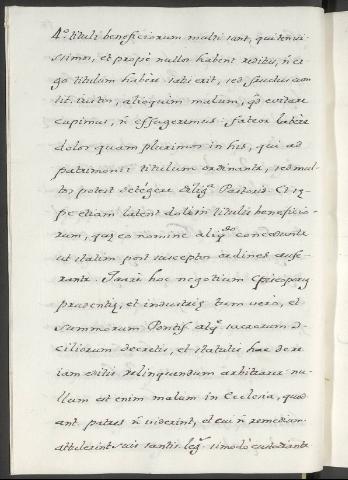 4.º tituli beneficiorum multi sunt, qui tenui-
ssimos, et prope nullos habent reditus, ñ er
go titulum habere satis erit, sed fructus con
sit. Quin, alioquem malum, q̃d evitare
cupimus, ñ effugeremus. fateor latere
dolos quam plurimos in his, qui ad
patrimonii titulum ordinantr, sed mul-
tos potest detegere dilig. Pastoris. et sę-
pe etiam latent dolim titulis beneficio-
rum, quę eo nomine aliq̃do conceduntr
ut statim post susceptos ordines aufe-
rantr. Itaque hoc negotium Episcoporum
prudentię, et industrię tum vero, et
summorum Pontif. alq̃ sacrorum Con-
ciliorum decretis, et statutis hac de re
iam editis relinquendum arbitramur nu-
llum est enim malum in Ecclesia, quod
ant. patres ñ viderint, et cui ñ remedium
attulerint suis santis. leg. simodo custodiantr